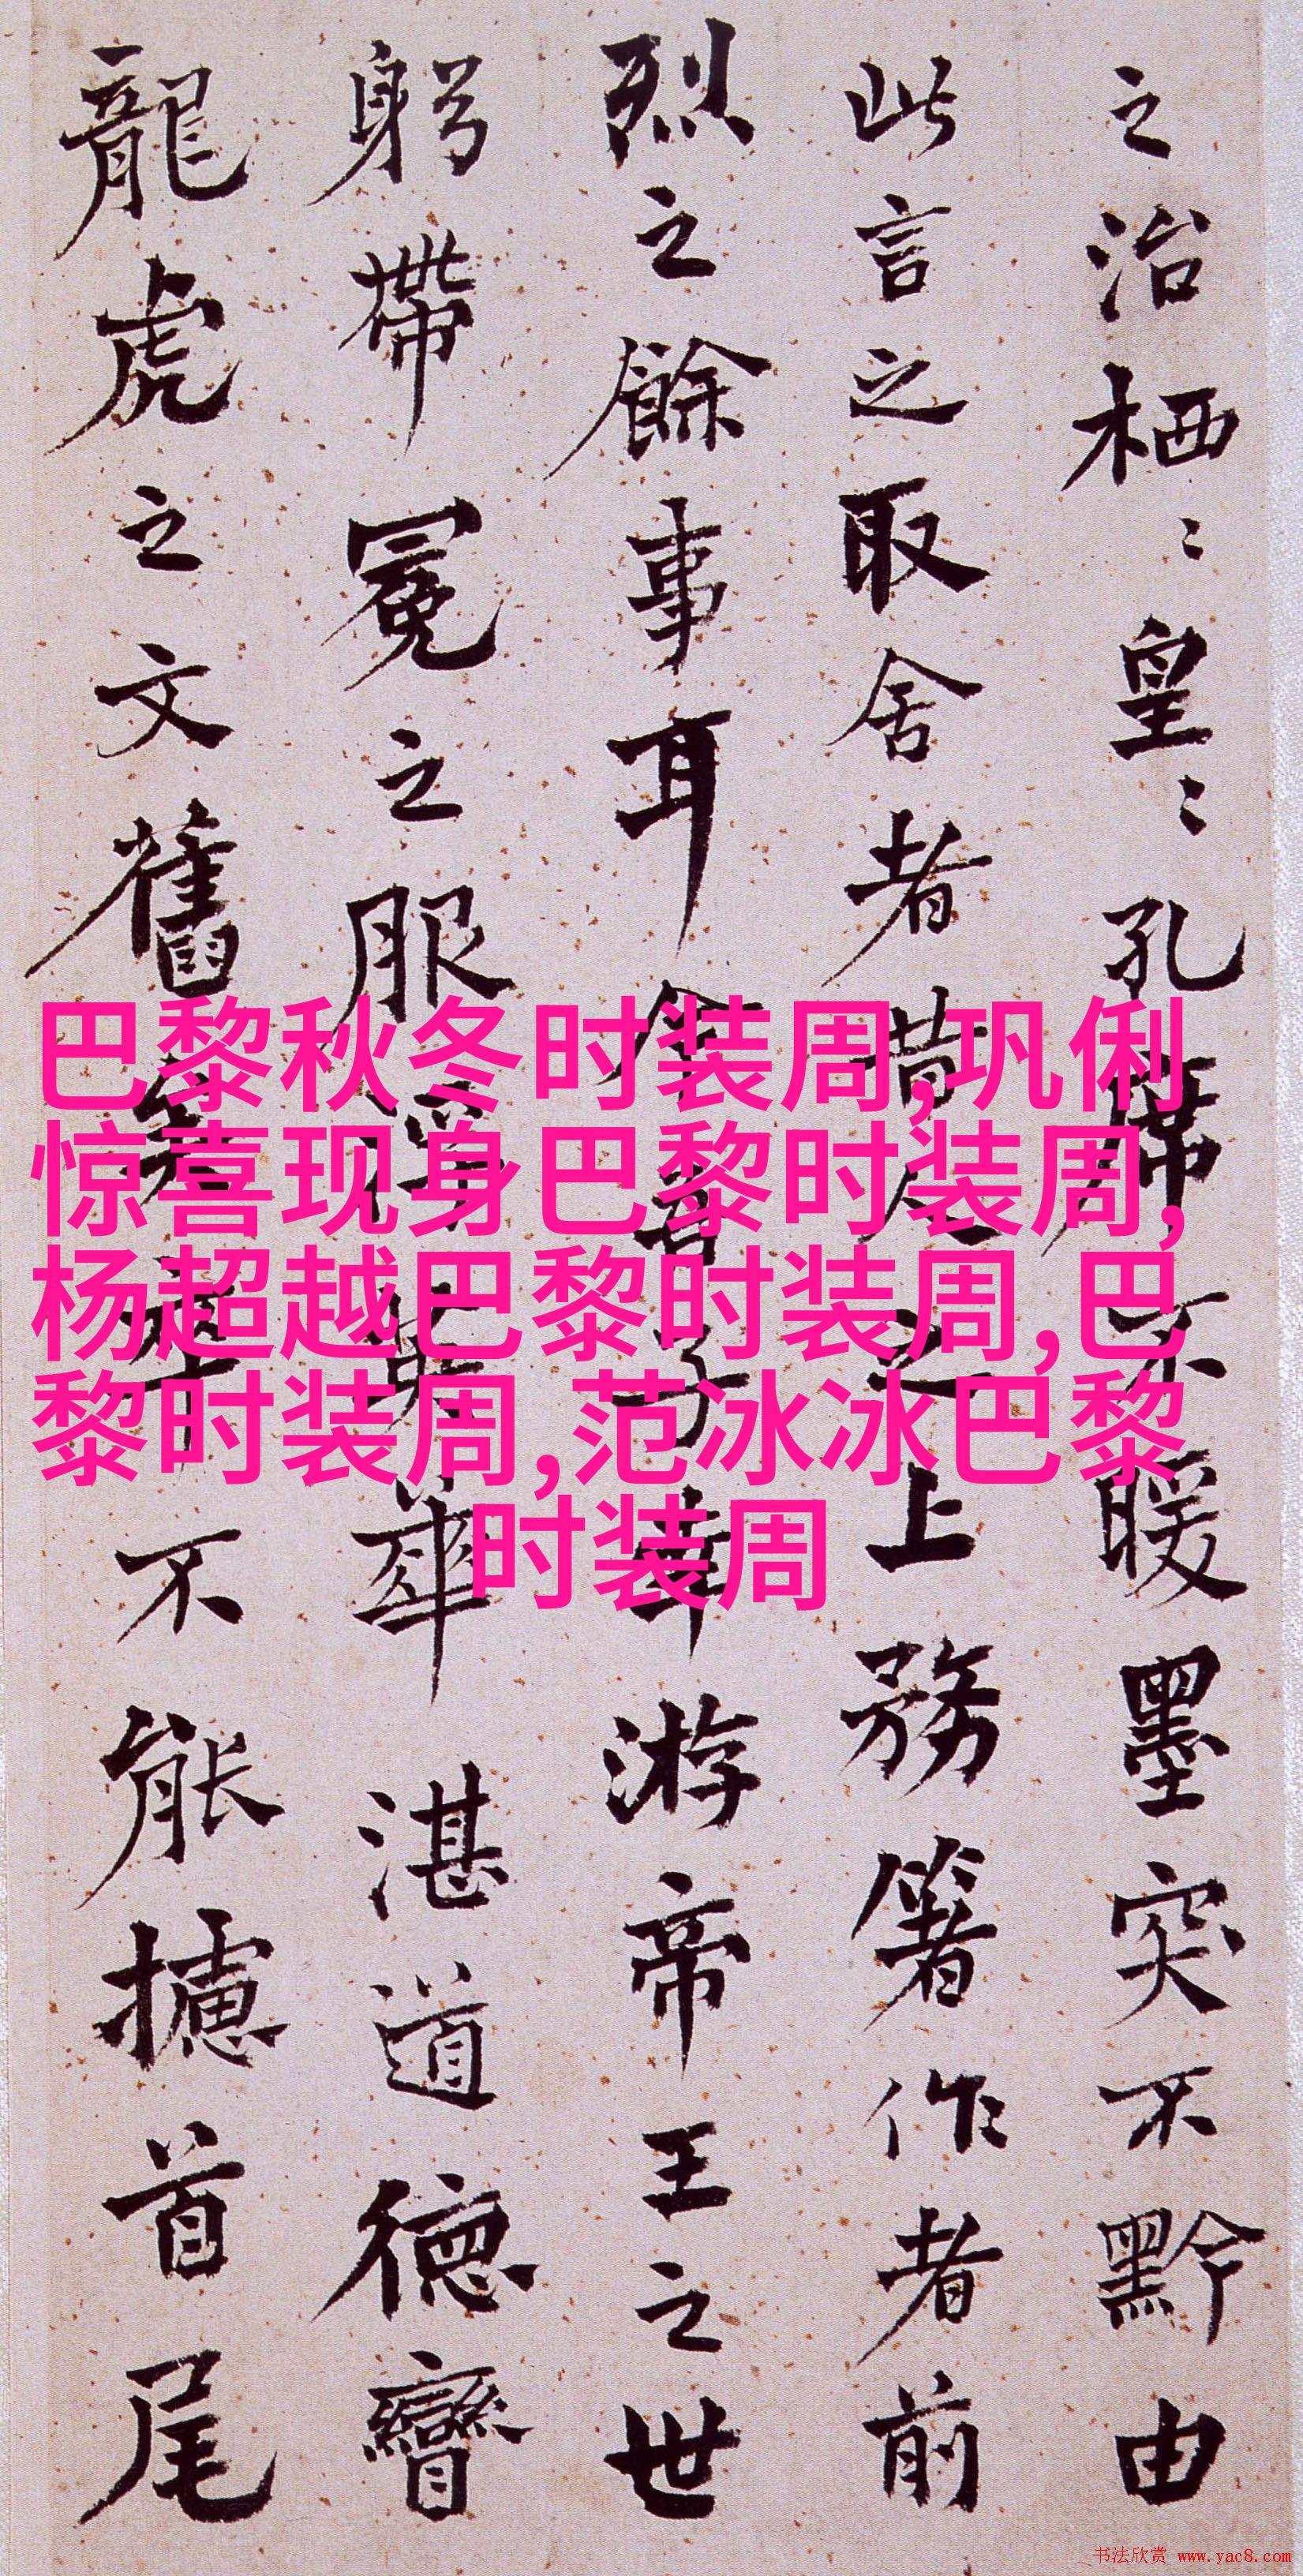 之治栖〻皇〻孔席不暖墨突不黔由
此言之取舍者昔人之上務箸作者前
烈之餘事耳今吾子幸游帝王之世
躬帶冕之服浮英華湛道德矕
龍虎之文舊矣卒不能攄首尾
巴黎秋冬时装周,巩俐
惊喜现身巴黎时装周,
杨超越巴黎时装周,巴
黎时装周,范冰冰巴黎
时装周
书法欣赏 www.yac8.com